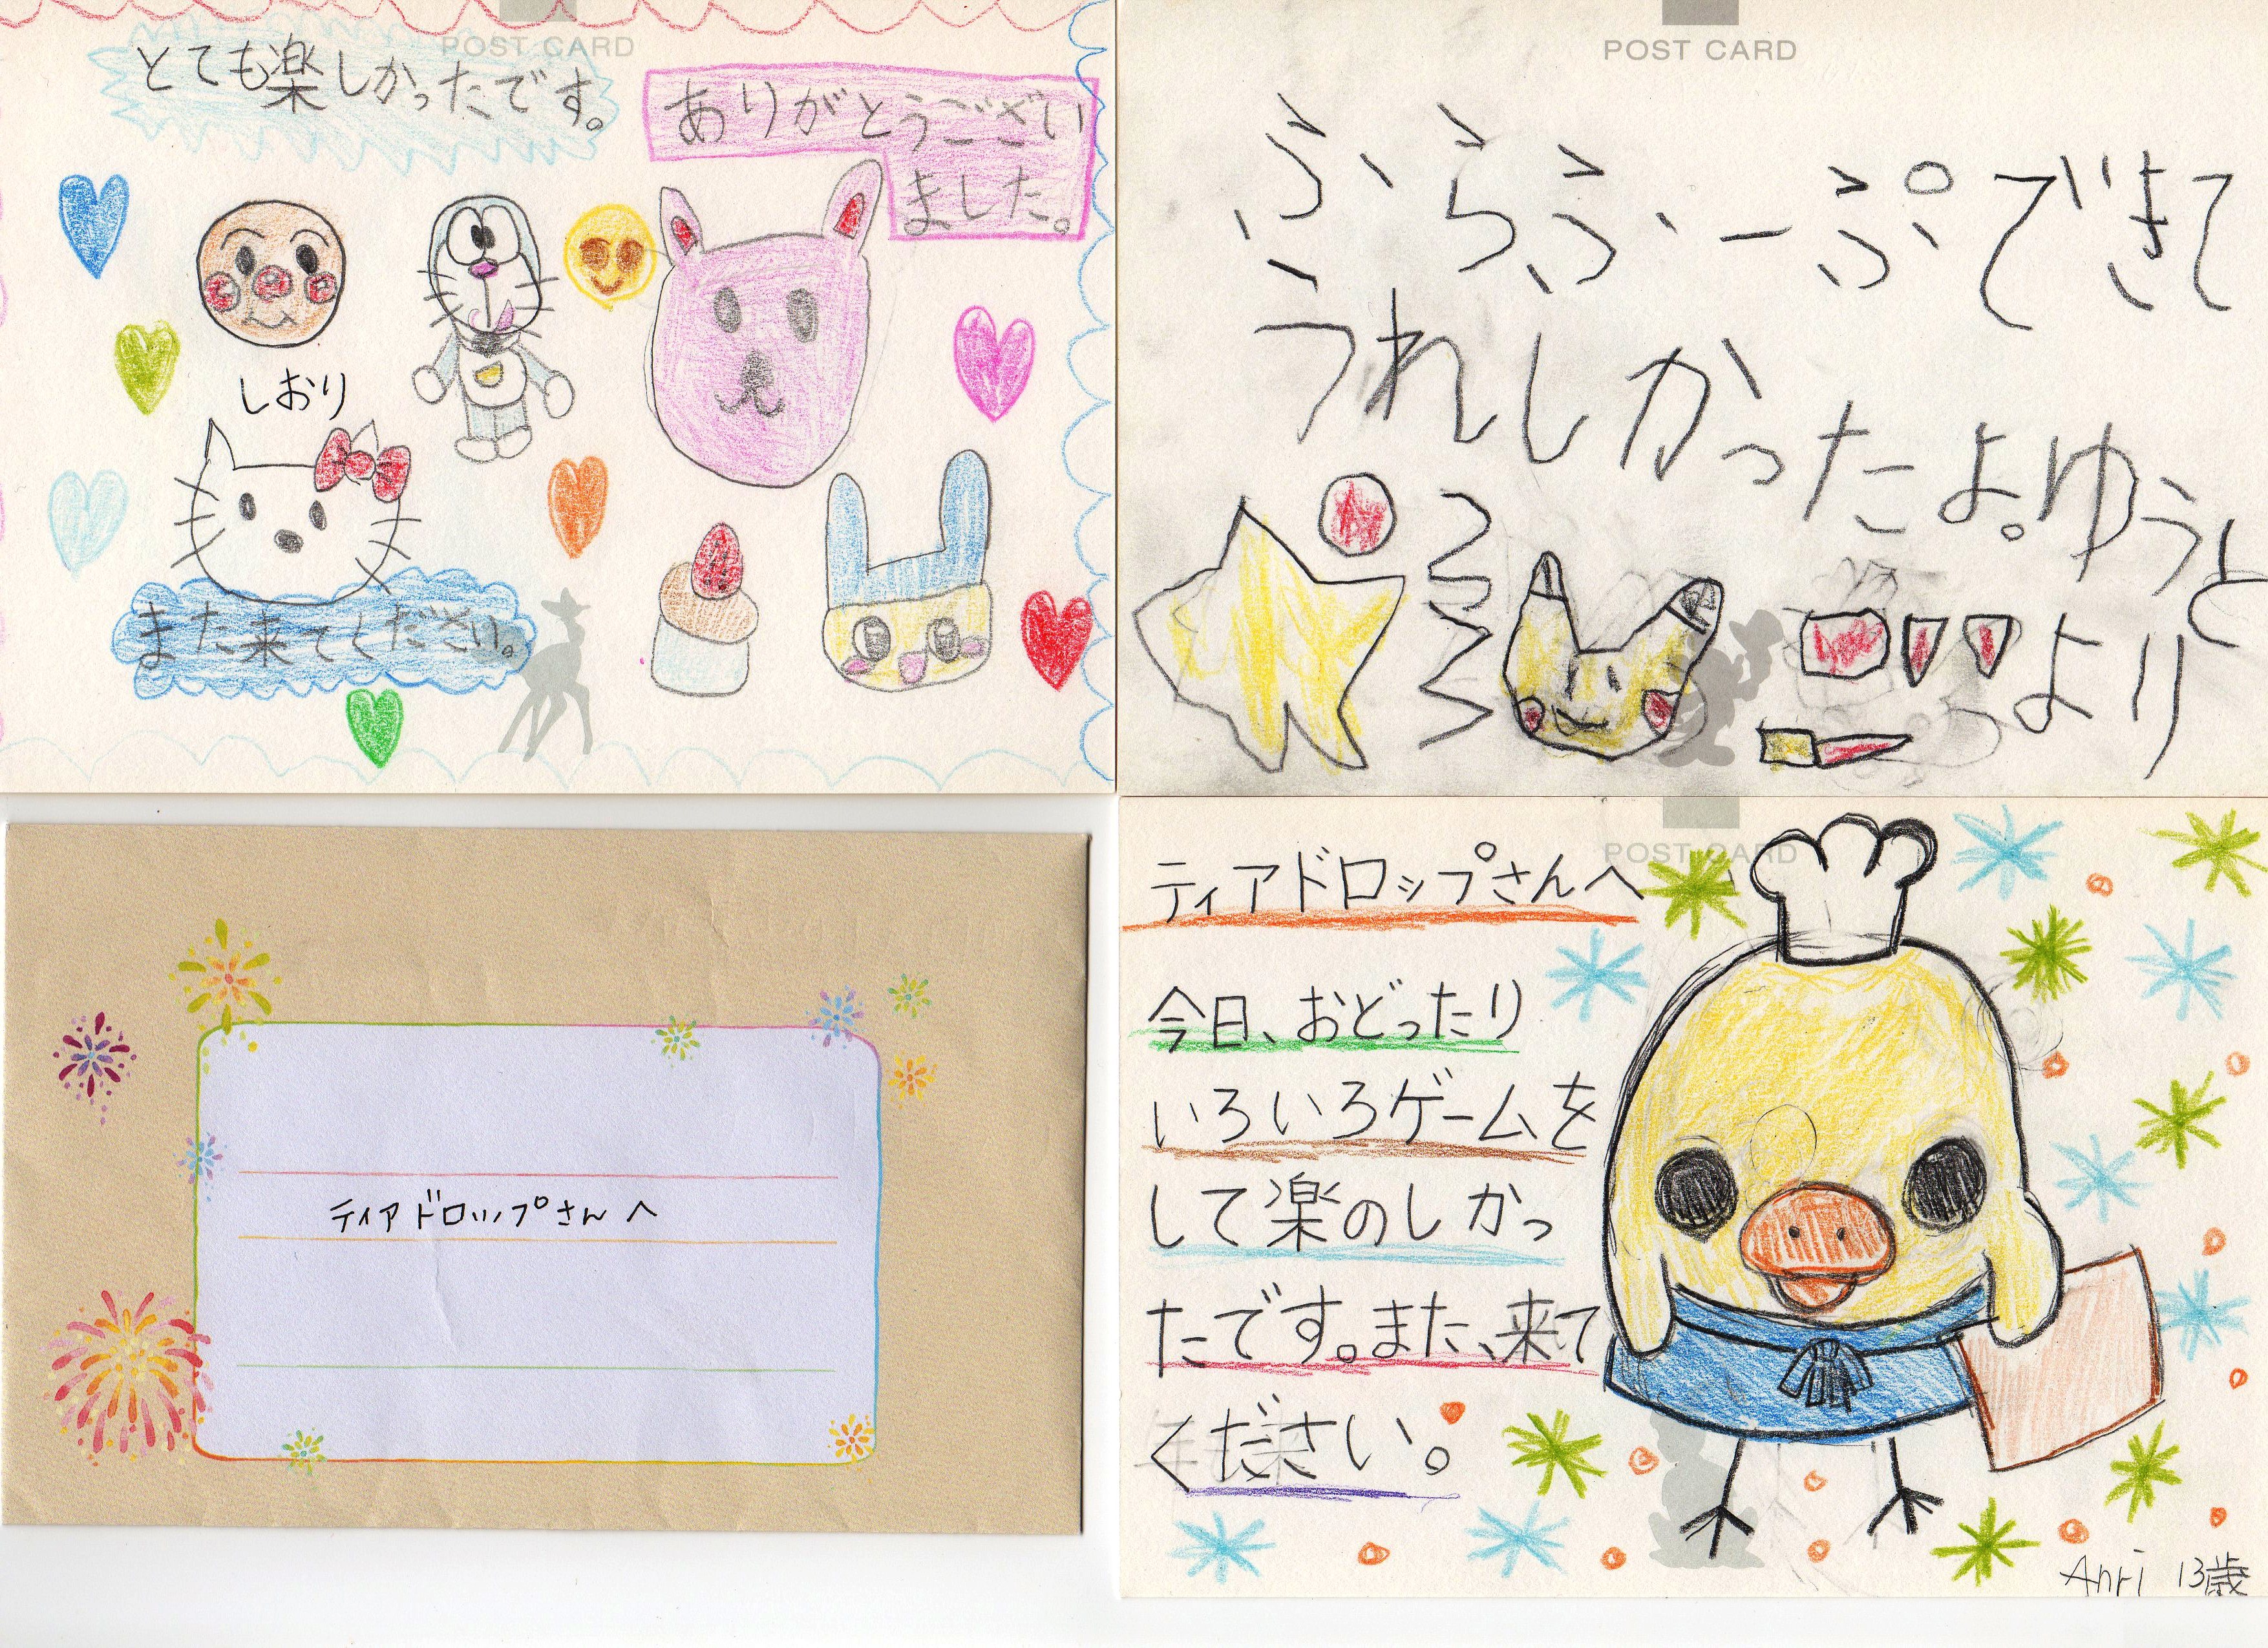 POST CARD
とても楽しかったです。
ありがとうござい
ました。
しおり
また来てください。
POST CARD
ふらふーぷできて
うれしかったよ。ゆうと
より
ティアドロップさんへ
POST CARD
ティアドロップさんへ
今日、おどったり
いろいろゲームを
して楽のしかっ
たです。また、来て
ください。
Anri 13歳